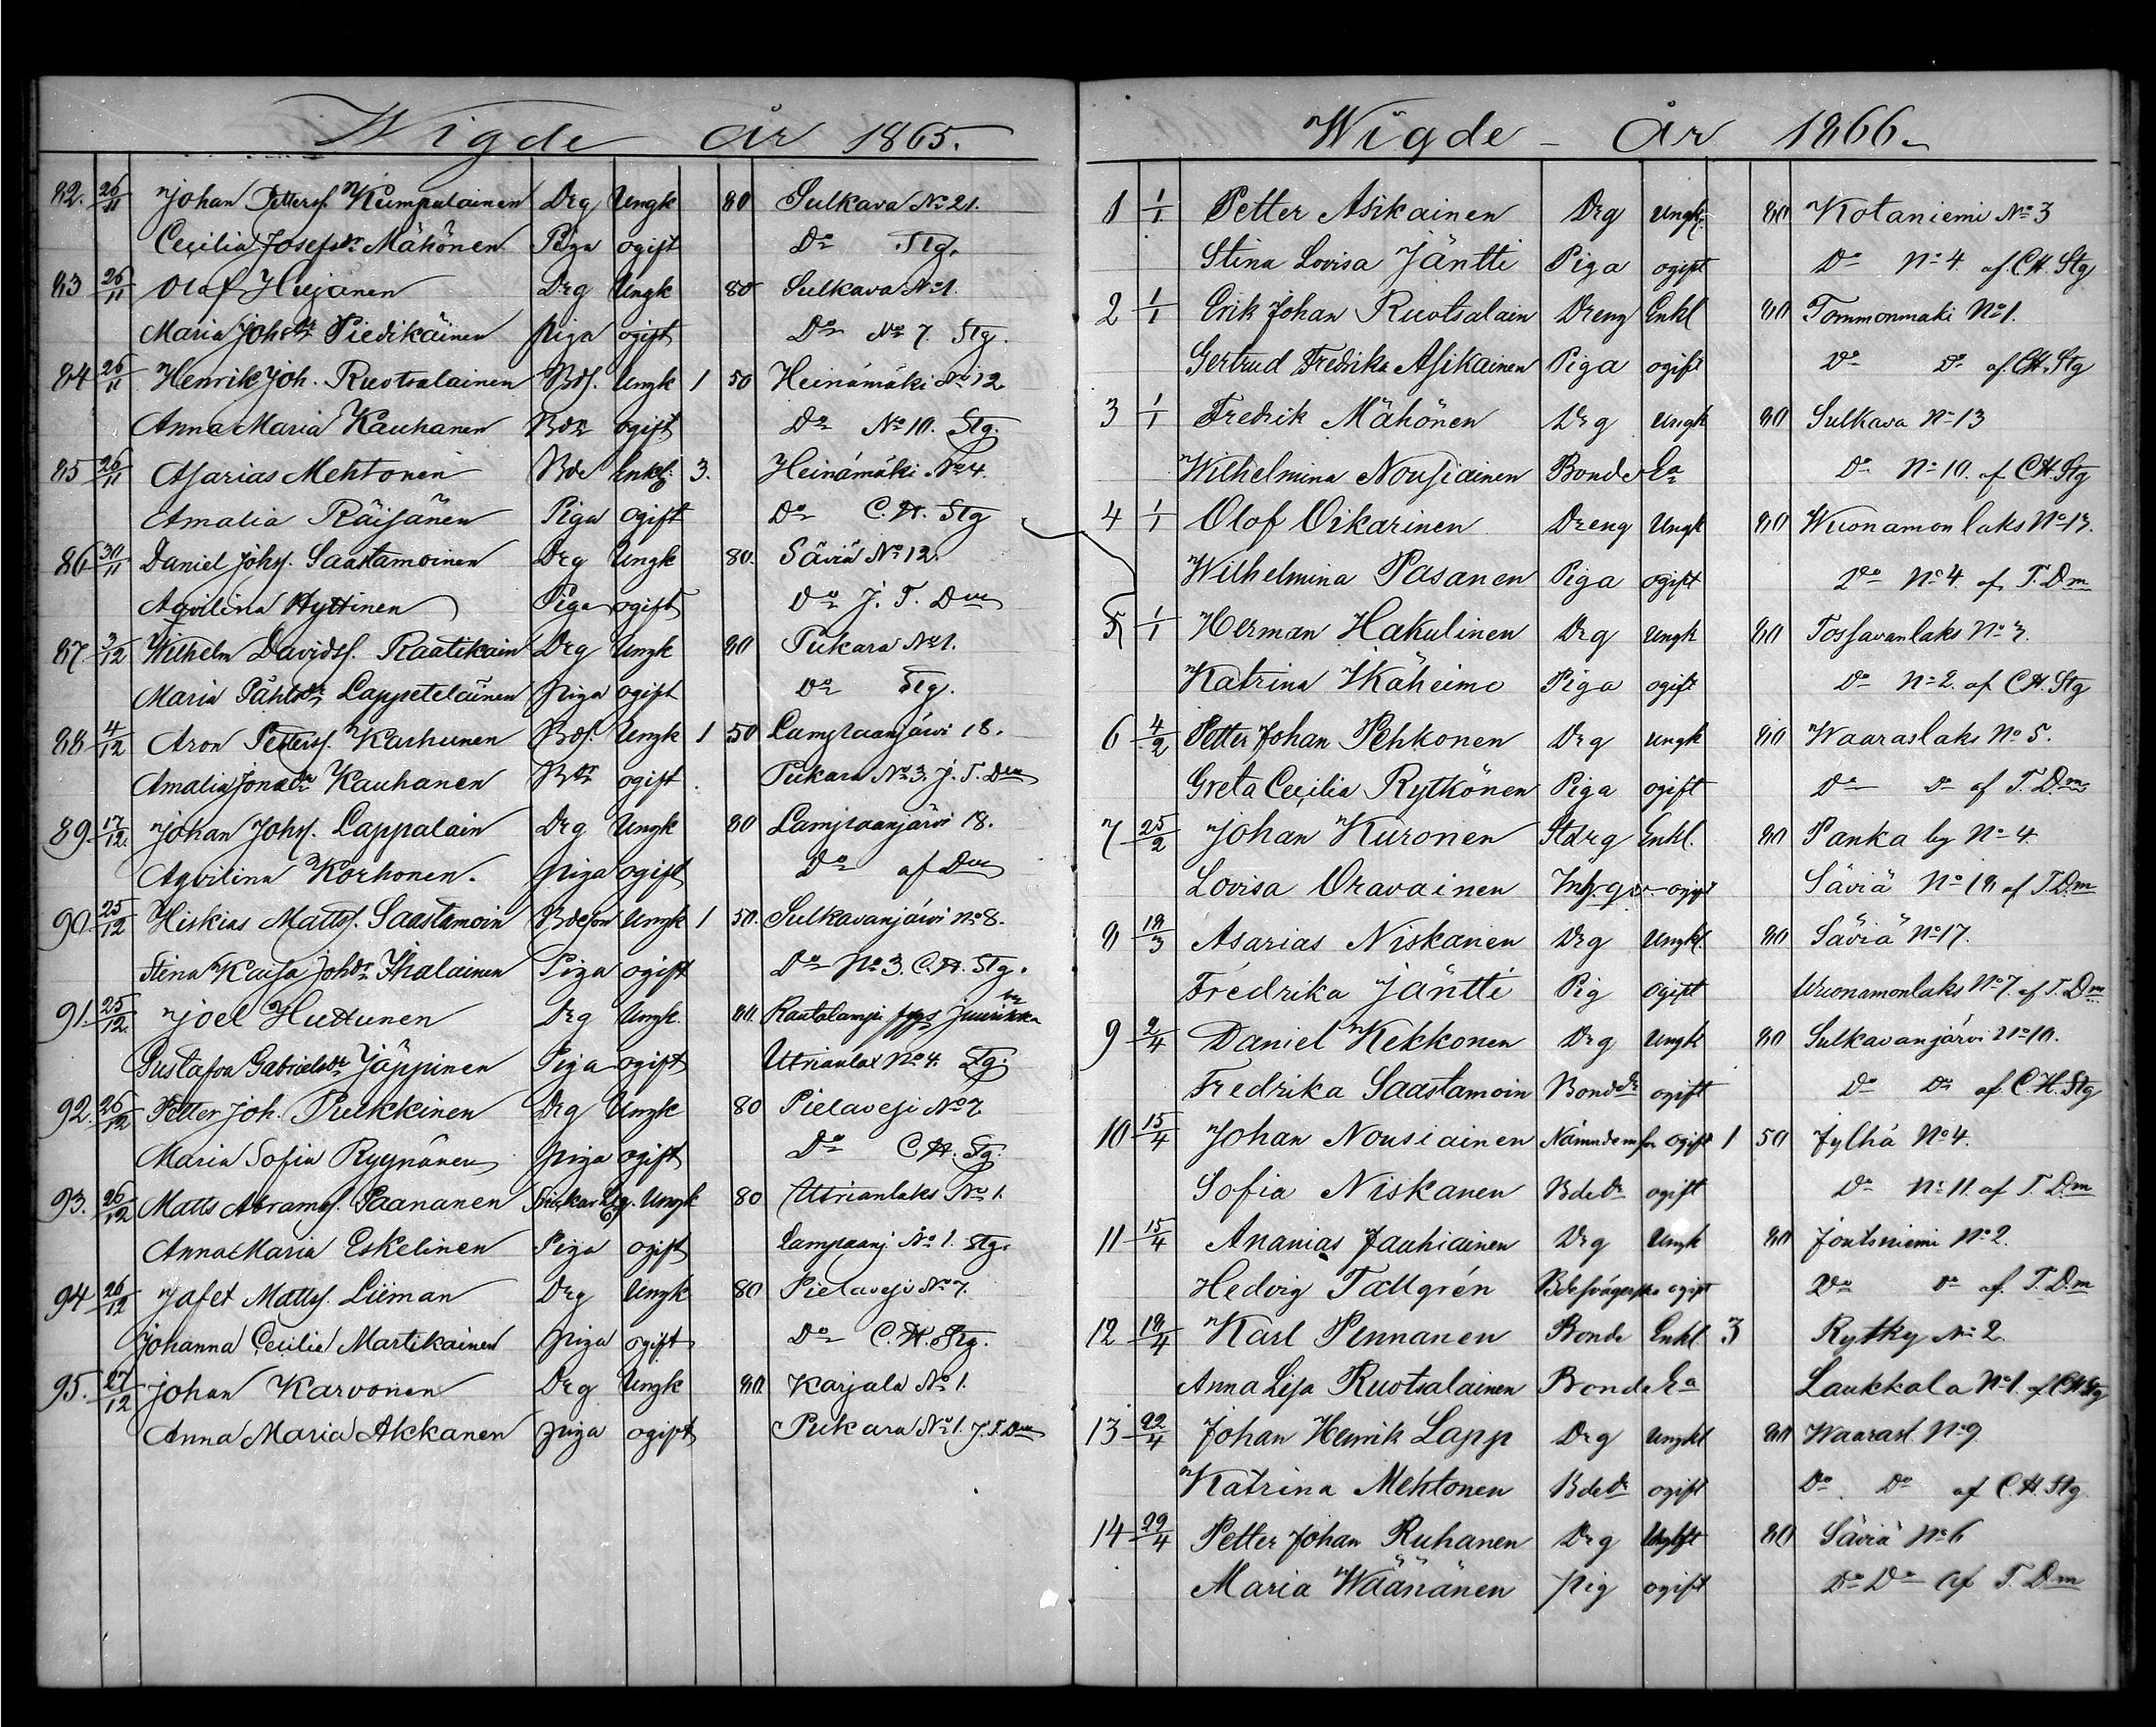 Wigde år 1865.
82. 26/11 Johan Petterss. Kumpulainen Drg Ungk 80 Sulkava No 21.
Cecilia Josefsdr Mähönen Piga ogift Do Stg.
83 26/11 Olof Hujanen Drg Ungk 80 Sulkava No 1.
Maria Johsdr Piedikäinen piga ogift Do No 7. Stg.
84 26/11 Henrik Joh. Ruotsalainen Bds. Ungk 1 50 Heinämäki No 12
Anna Maria Kauhanen Bdr ogift Do No 10. Stg.
85 26/11 Asarias Mehtonen Bde Enkl. 3. Heinämäki No 4.
Amalia Räisänen Piga ogift Do C. H. Stg
86 30/11 Daniel Johs. Saastamoinen Drg Ungk 80. Säviä No 12.
Aqvilina Hyttinen Piga ogift Do J. T. Dm
87 3/12 Wilhelm Davidss. Raatikain Drg Ungk 80 Pukara No 1.
Maria Påhlsdr Lappeteläinen piga ogift Do Stg.
88 4/12 Aron Petterss. Karhunen Bds. Ungk 1 50 Lampaanjärvi 18.
Amalia Jonadr Kauhanen Bdr ogift. Pukara No 3. J. T. Dm
89. 17/12. Johan Johs. Lappalain Drg Ungk 80 Lampaanjärvi 18.
Aqvilina Korhonen. piga ogift Do af Dm
90 25/12 Hiskias Mattss. Saastamoin Bdeson Ungk 1 50. Sulkavanjärvi No 8.
Stina Kaisa Johdr Ihalainen Piga ogift Do No 3. C. H. Stg.
91. 25/12. Joel Huttunen Drg Ungk. 80. Rautalampi Juurikka
Gustafva Gabrielsdr Jäppinen Piga ogift Utrianlax No 4. Stg.
92. 26/12 Petter Joh. Pulkkinen Drg Ungk 80 Pielavesi No 7
Maria Sofia Ryynänen piga ogift Do C. H. Stg.
93. 26/12 Matts Abramss. Paananen Ungk 80 Utrianlaks No 1.
Anna Maria Eskelinen Piga ogift Lampaanj. No 1. Stg.
94 26/12 Jafet Mattss. Liiman Drg Ungk 80 Pielavesi No 7.
Johanna Cecilia Martikainen piga ogift Do C. H. Stg.
95. 27/12 Johan Karvonen Drg Ungk 80. Karjala No 1.
Anna Maria Akkanen piga ogift Pukara No 1. J. T. Dm
Wigde – År 1866.
1 1/1 Petter Asikainen Drg Ungk. 80 Kotaniemi No 3
Stina Lovisa Jäntti Piga ogift Do No 4. af C. H. Stg
2 1/1 Erik Johan Ruotsalain Dreng Enkl 80 Tommonmaki No 1.
Gertrud Fredrika Asikainen Piga ogift Do Do af C. H. Stg
3 1/1 Fredrik Mähönen Drg Ungk 80 Sulkava No 13
Wilhelmina Nousiainen Bonde Ea Do No 10. af C. H. Stg
4 1/1 Olof Oikarinen Dreng Ungk 80 Wuonamonlaks No 13.
Wilhelmina Pasanen Piga ogift Do No 4. af T. Dm
5 1/1 Herman Hakulinen Drg Ungk 80 Tossavanlaks No 3.
Katrina Ikäheimo Piga ogift Do No 2. af C. H. Stg
6 4/2 Petter Johan Pehkonen Drg Ungk 80 Waaraslaks No 5.
Greta Cecilia Rytkönen Piga ogift Do Do af T. Dm
7 25/2 Johan Kuronen Stdrg Enkl. 80 Panka by No 4.
Lovisa Oravainen ogift Säviä No 18 af T. Dm
8 18/3 Asarias Niskanen Drg Ungkl 80 Säviä No 17.
Fredrika Jäntti Pig ogift Wuonamonlaks No 7. af T. Dm
9 2/4 Daniel Kekkonen Drg Ungk 80 Sulkavanjärvi No 10.
Fredrika Saastamoin Bondedr ogift Do Do af C. H. Stg
10 15/4 Johan Nousiainen Nämndemson ogift 1 50 Jylhä No 4.
Sofia Niskanen Bdedr ogift Do No 11. af T. Dm
11 15/4 Ananias Jauhiainen Drg Ungk 80 Joutsniemi No 2.
Hedvig Tallgrén Bdesvägerska ogift Do Do af. T. Dm
12 18/4 Karl Pennanen Bonde Enkl. 3 Rytky No 2.
Anna Lisa Ruotsalainen Bonde Ea Laukkala No 1. af C. H. Stg
13 22/4 Johan Henrik Lapp Drg Ungkl 80 Waarasl. No 9
Katrina Mehtonen Bdedr ogift Do Do af C. H. Stg.
14 29/4 Petter Johan Ruhanen Drg 80 Säviä No 6
Maria Wäänänen pig ogift Do Do af T. Dm